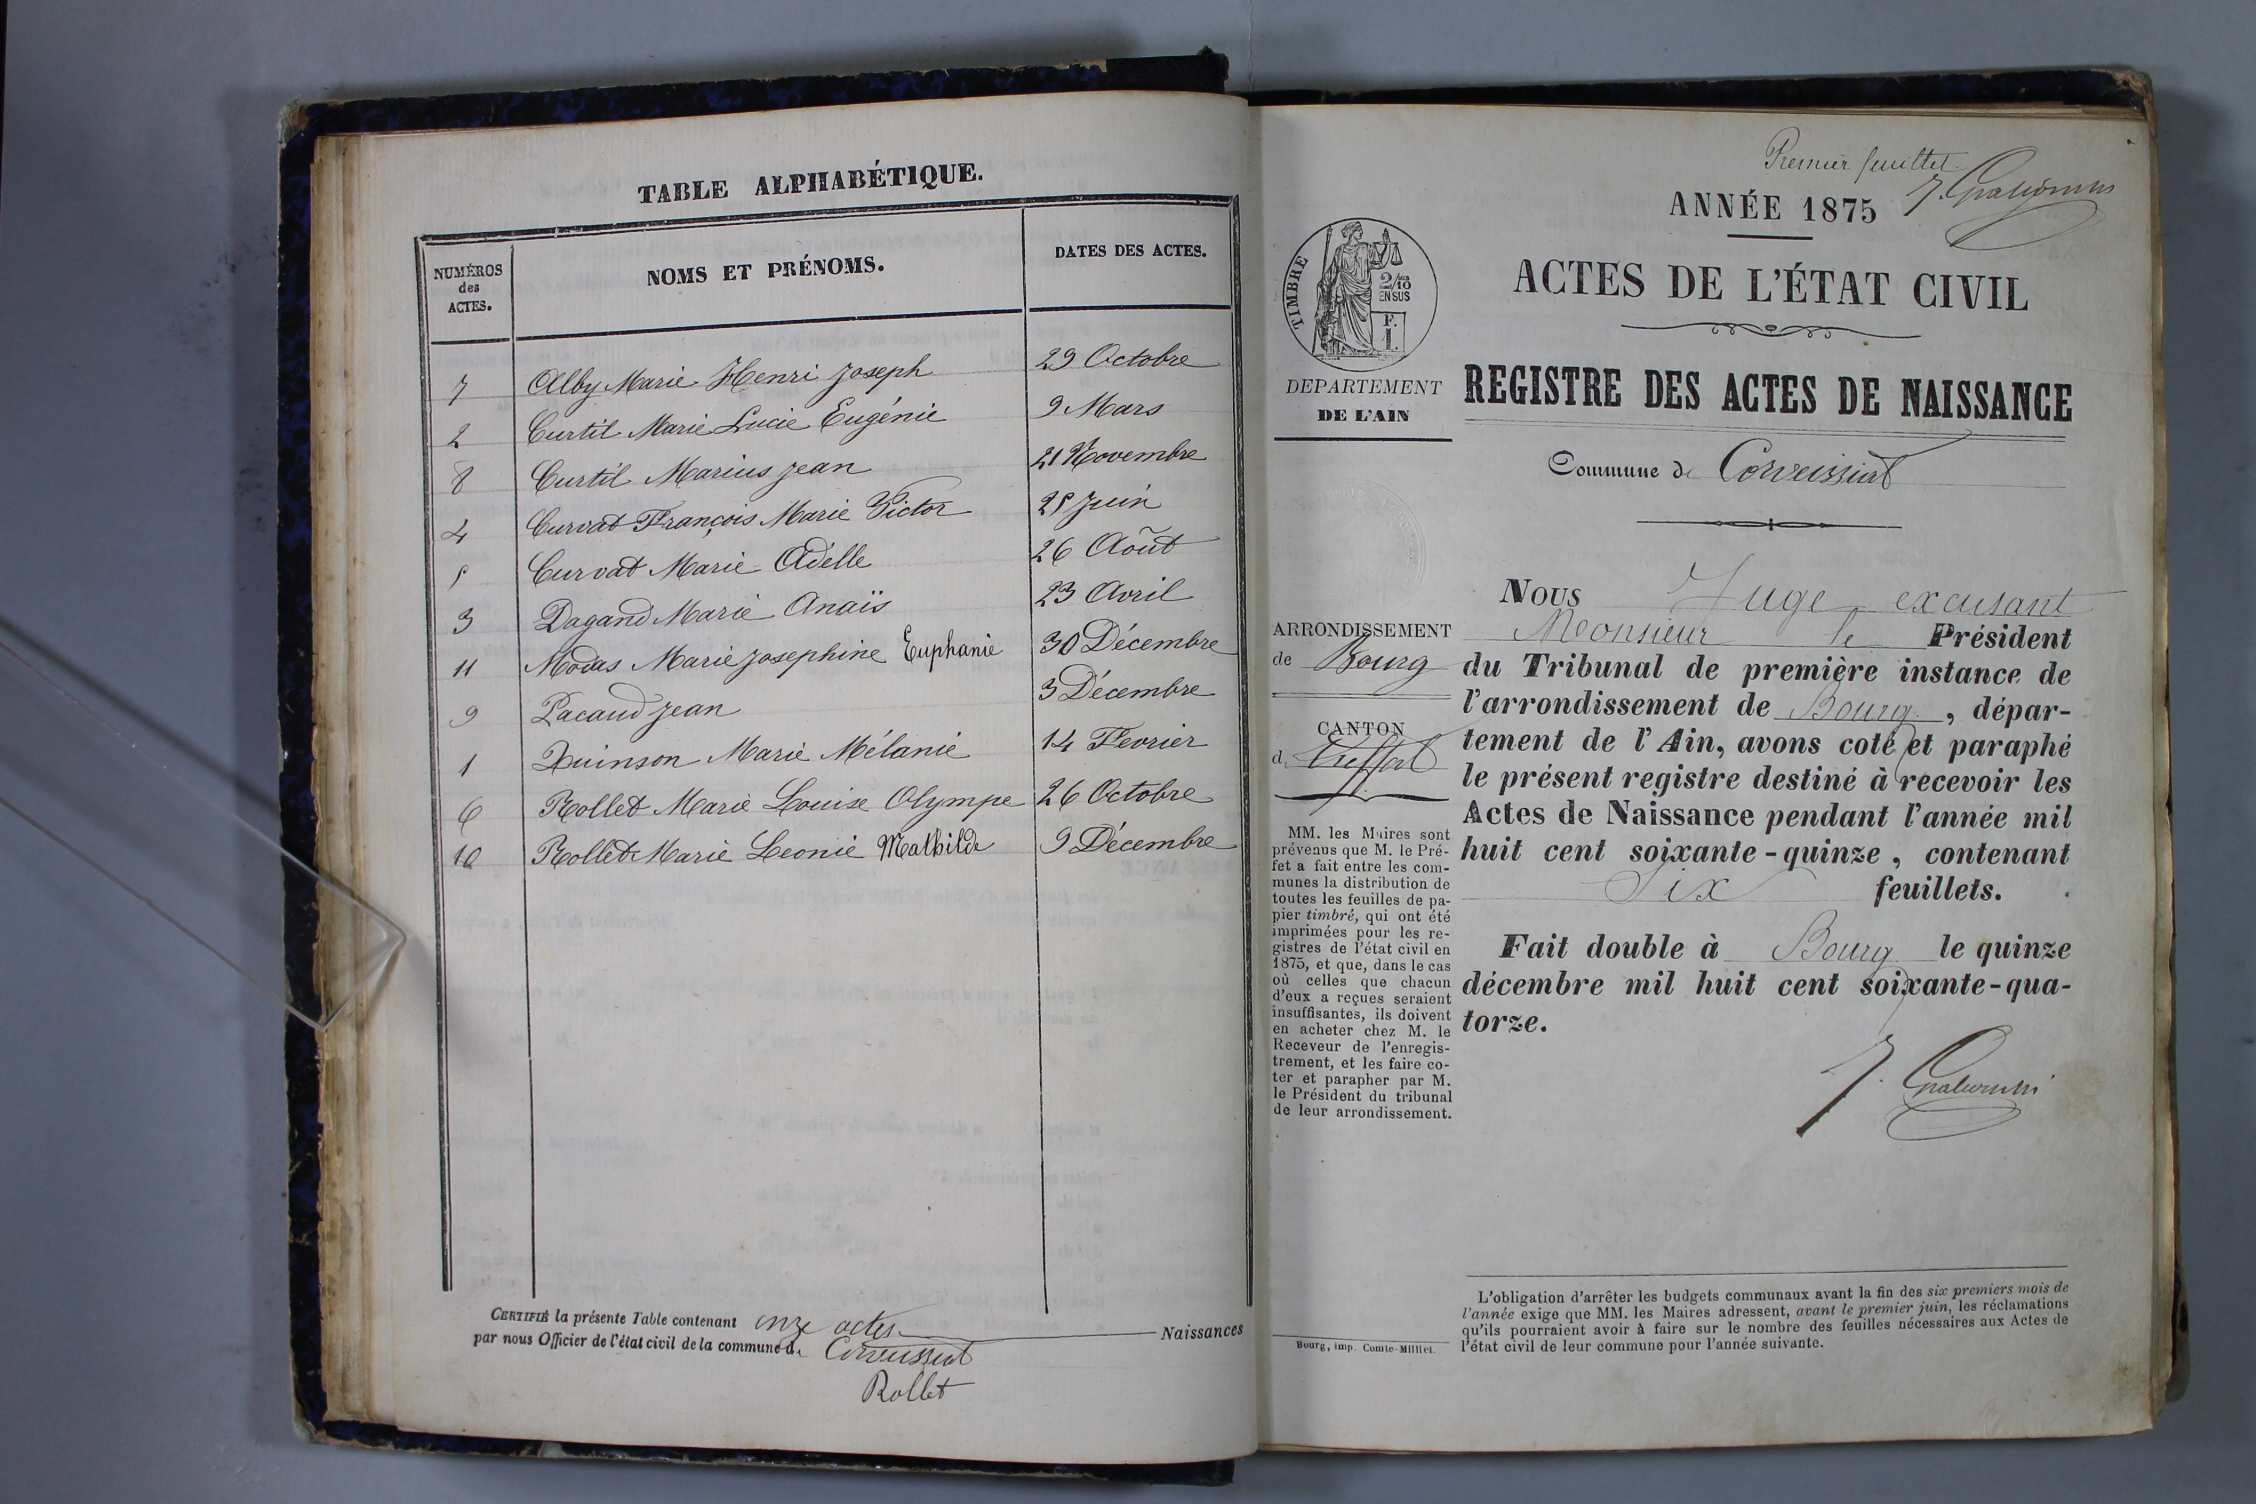 TABLE ALPHABÉTIQUE.
NUMÉROS des ACTES.
NOMS ET PRÉNOMS.
DATES DES ACTES.
7 Alby Marie Henri Joseph 29 Octobre
2 Curtil Marie Lucie Eugénie 9 Mars
8 Curtil Marius Jean 21 Novembre
4 Curvat François Marie Victor 25 Juin
5 Curvat Marie Adélle 26 Août
3 Dagand Marie Anaïs 23 Avril
11 Modas Marie Josephine Euphanie 30 Décembre
9 Pacaud Jean 3 Décembre
1 Quinson Marie Mélanie 14 Fevrier
6 Rollet Marie Louise Olympe 26 Octobre
10 Rollet Marie Leonie Mathilde 9 Décembre
CERTIFIÉ la présente Table contenant onze actes Naissances
par nous Officier de l'état civil de la commune de Corveissiat
Rollet
Premier feuillet.
ANNÉE 1875
ACTES DE L'ÉTAT CIVIL
REGISTRE DES ACTES DE NAISSANCE
Commune de Corveissiat
TIMBRE
2/10
EN SUS
F.
1.
DEPARTEMENT
DE L'AIN
ARRONDISSEMENT
de Bourg
CANTON
de Treffort
MM. les Maires sont
prévenus que M. le Pré-
fet a fait entre les com-
munes la distribution de
toutes les feuilles de pa-
pier timbré, qui ont été
imprimées pour les re-
gistres de l'état civil en
1875, et que, dans le cas
où celles que chacun
d'eux a reçues seraient
insuffisantes, ils doivent
en acheter chez M. le
Receveur de l'enregis-
trement, et les faire co-
ter et parapher par M.
le Président du tribunal
de leur arrondissement.
Bourg, imp. Comte-Milliet.
NOUS Juge excusant
Monsieur le Président
du Tribunal de première instance de
l'arrondissement de Bourg, dépar-
tement de l'Ain, avons coté et paraphé
le présent registre destiné à recevoir les
Actes de Naissance pendant l'année mil
huit cent soixante-quinze, contenant
Six feuillets.
Fait double à Bourg le quinze
décembre mil huit cent soixante-qua-
torze.
L'obligation d'arrêter les budgets communaux avant la fin des six premiers mois de
l'année exige que MM. les Maires adressent, avant le premier juin, les réclamations
qu'ils pourraient avoir à faire sur le nombre des feuilles nécessaires aux Actes de
l'état civil de leur commune pour l'année suivante.